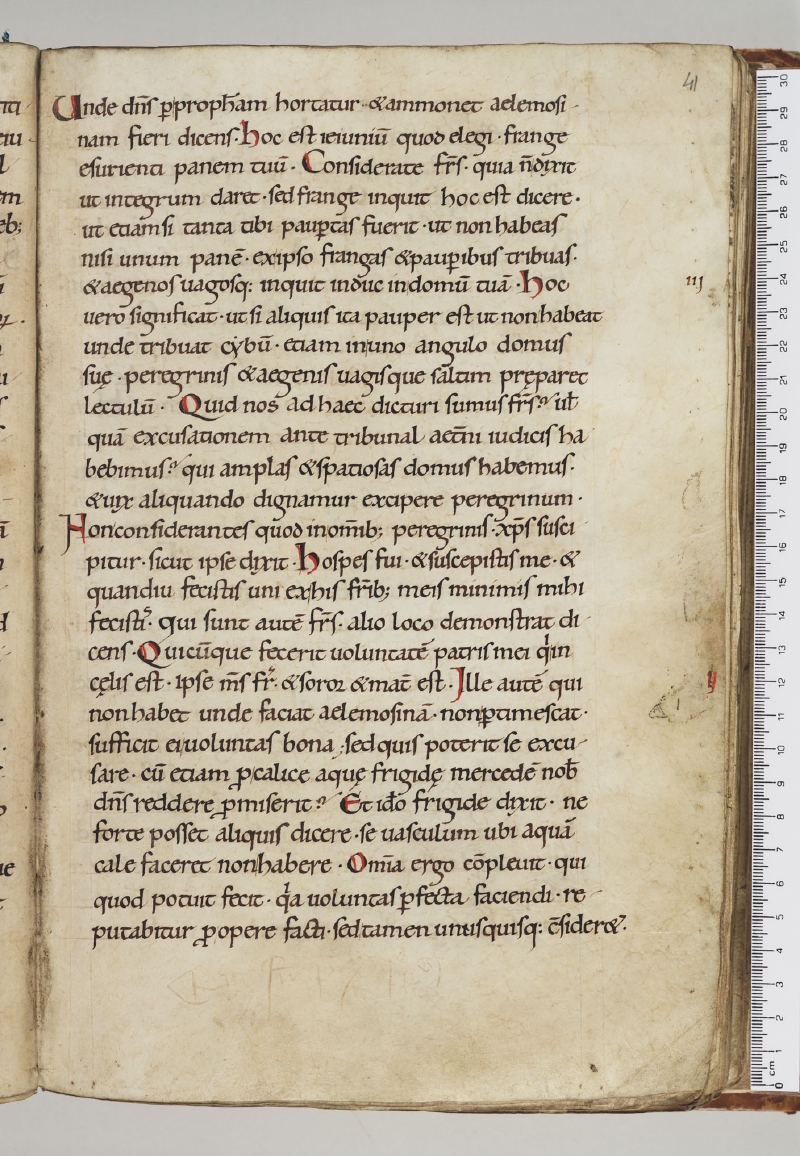 41
Unde dn̄s ꝑproph̄am hortatur · &ammonet aelemosi-
nam fieri dicens· hoc est ieiuniū quod elegi · frange
esurienti panem tuū · Considerate fr̄s · quia n̄dixit
ut integrum daret · sed frange inquit hoc est dicere ·
ut etiamsi tanta tibi pauꝑtas fuerit · ut non habeas
nisi unum panē · ex ipso frangas & pauꝑibus tribuas·
& aegenos uagosq: inquit induc in domū tuā · hoc
iij
uero significat · ut si aliquis ita pauper est ut non habeat
unde tribuat cybū · etiam in uno angulo domus
suę · peregrinis & aegenis uagisque saltim pręparet
lectulū · Quid nos ad haec dicturi sumus fr̄s? ut̄
quā excusationem ante tribunal aet̄ni iudicis ha
bebimus? qui amplas & spatiosas domus habemus·
& uix aliquando dignamur excipere peregrinum ·
Non considerantes quod in om̄ib; peregrinis · xp̄s susci
pitur · sicut ipse dixit · hospes fui · & suscepistis me · &
quandiu fecistis uni ex his fr̄ib; meis minimis mihi
fecistis· qui sunt autē fr̄s · alio loco demonstrat di-
cens · Quicūque fecerit uoluntatē patris mei qi in
cęlis est · ipse m̄s fr̄ · & soror & mat̄ est · Ille autē qui
ij
non habet unde faciat aelemosinā · nonꝑtimescat ·
sufficit ei uoluntas bona ; sed quis poterit se excu-
sare · cū etiam ꝓcalice aquę frigidę mercedē nob̄
dn̄s reddere ꝓmiserit? Et id̄o frigide dixit · ne
forte posset aliquis dicere · se uasculum ubi aquā
cale faceret non habere · Om̄ia ergo cōpleuit · qui
quod potuit fecit · qa uoluntas ꝑfecta faciendi · re-
putabitur ꝓopere facti · sed tamen unusquisq: c̄sider&
cm
0 1 2 3 4 5 6 7 8 9 10 11 12 13 14 15 16 17 18 19 20 21 22 23 24 25 26 27 28 29 30